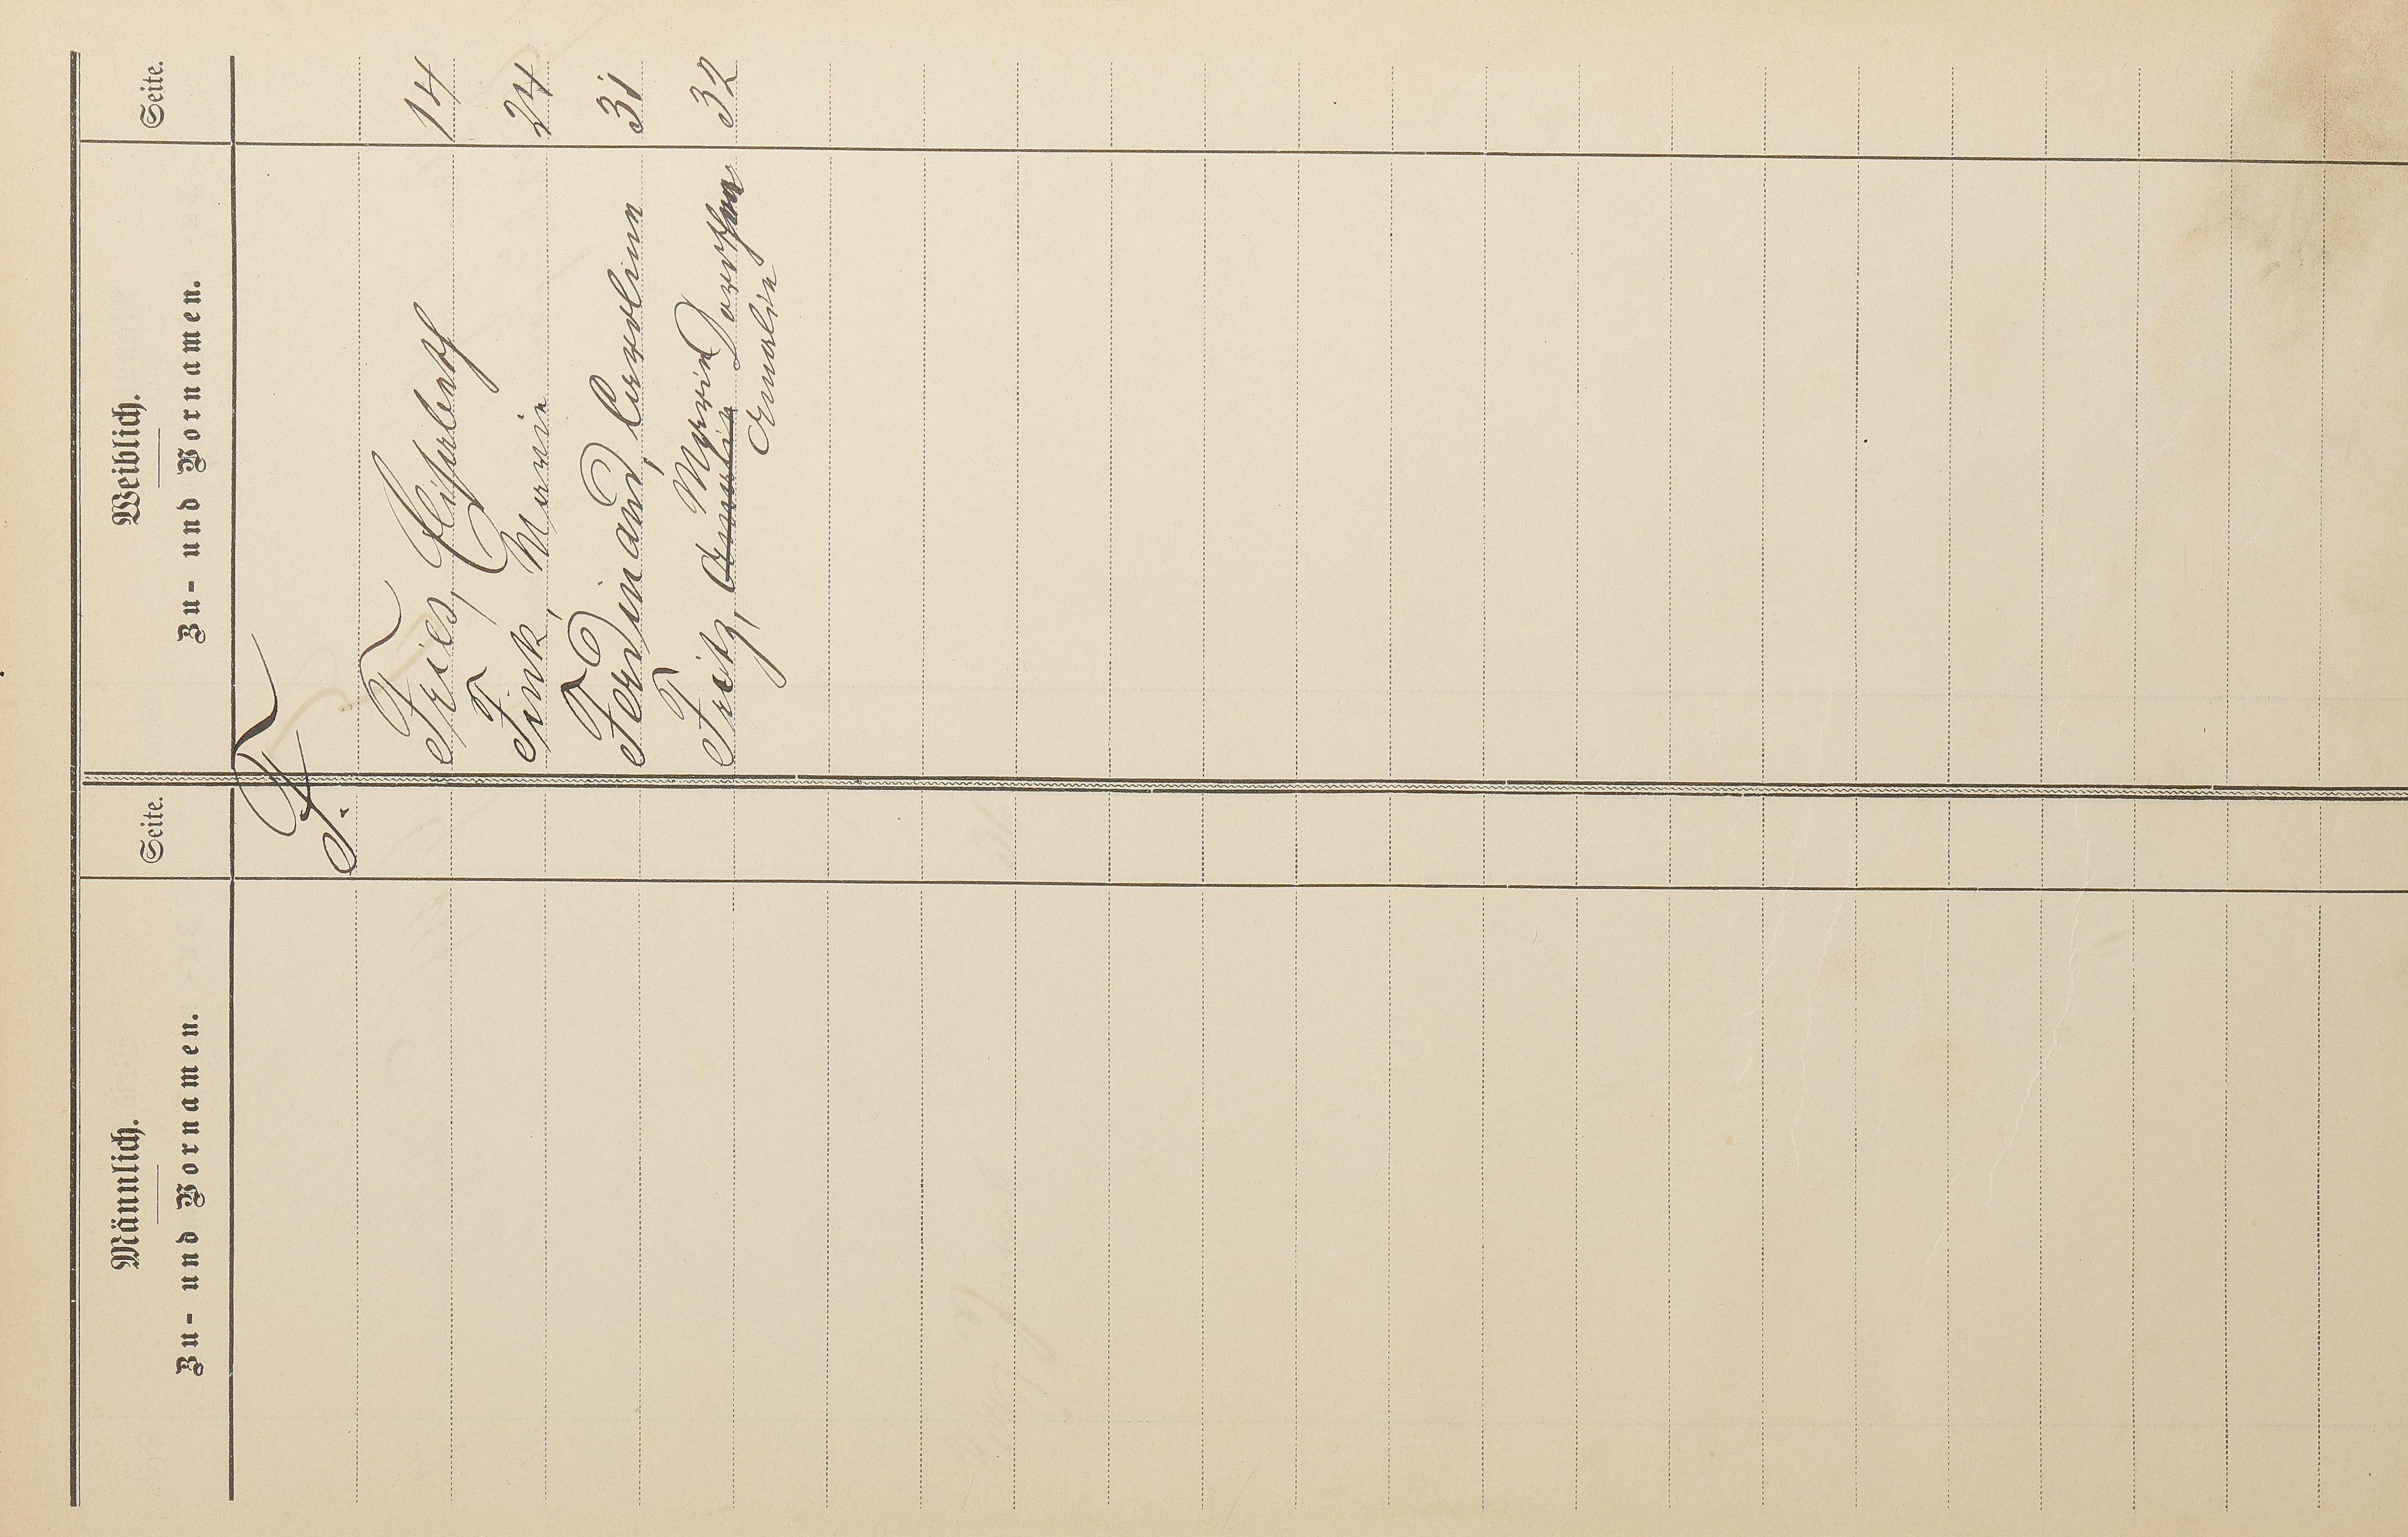 Männlich.
Zu- und Vornamen.
Seite.
Weiblich.
Zu- und Vornamen.
Seite.
F.
Fries, Elisabeth 14
Fink, Marie 24
Ferdinand, Caroline 31
Fritz, Amalie Marie Dorothea 32
Amalie